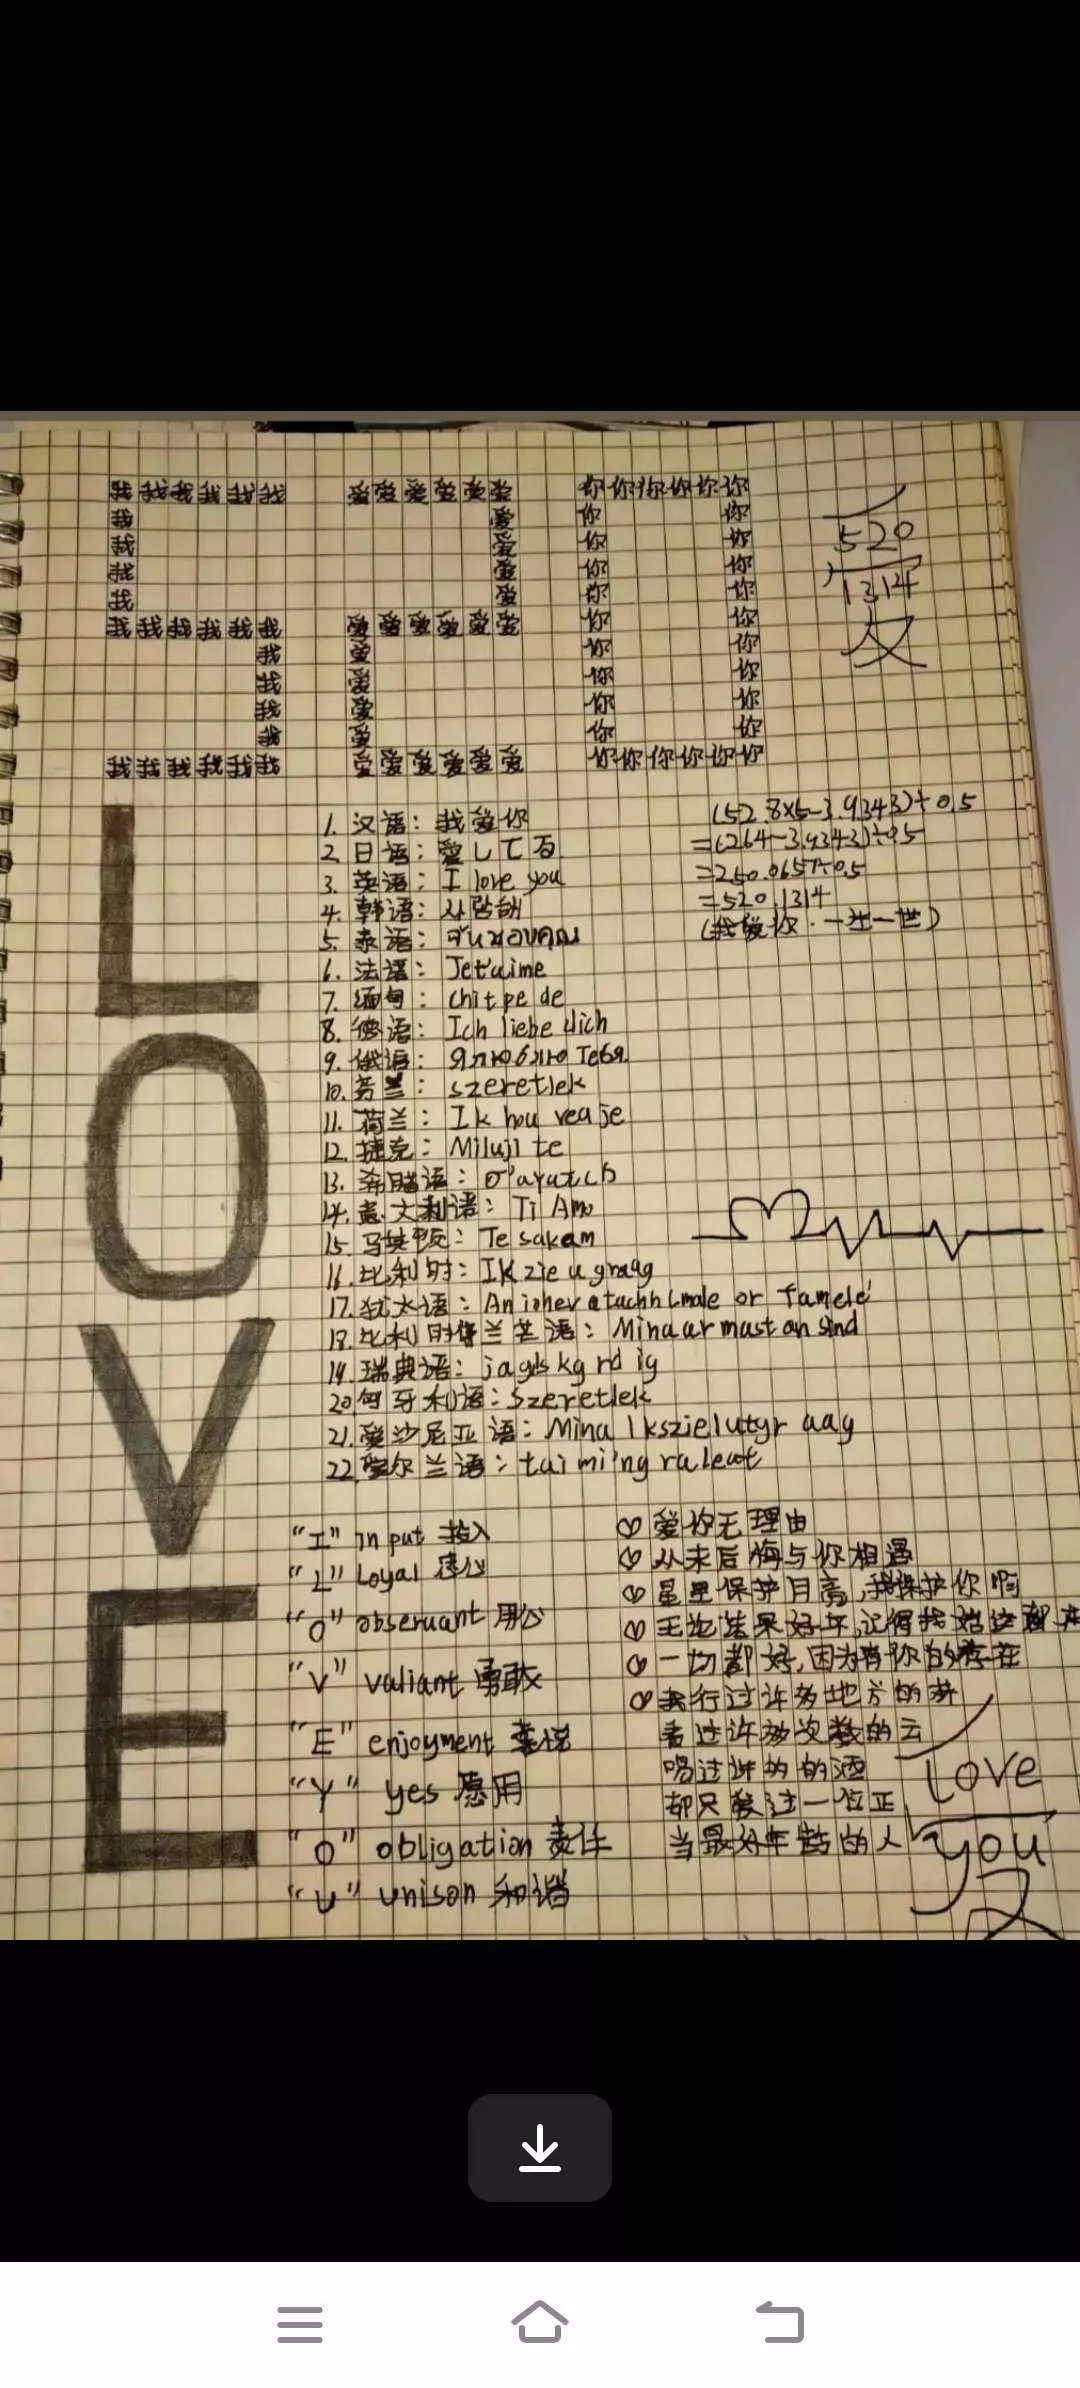 我我我我我我 爱爱爱爱爱爱 你你你你你你
我 爱 你 你
我 爱 你 你
我 爱 你 你
我 爱 你 你
我我我我我我 爱爱爱爱爱爱 你 你
我 爱 你 你
我 爱 你 你
我 爱 你 你
我 爱 你 你
我我我我我我 爱爱爱爱爱爱 你你你你你你
520
1314
友
LOVE
1. 汉语：我爱你
2. 日语：愛して
3. 英语：I love you
4. 韩语：사랑해
5. 泰语：
6. 法语：Jet'aime
7. 缅甸：chit pe de
8. 德语：Ich liebe dich
9. 俄语：
10. 芬兰：szeretlek
11. 荷兰：Ik hou vea je
12. 捷克：Miluji te
13. 希腊语：
14. 意大利语：Ti Amo
15. 马其顿：Te sakam
16. 比利时：Ik zie u graag
17. 犹太语：Ani ohev atachh (male or famele
18. 比利时佛兰芒语：Minaarmastansind
19. 瑞典语：jag ls kg rd ig
20. 匈牙利语：Szeretlek
21. 爱沙尼亚语：Mina lkszielutyr aag
22. 爱尔兰语：taimi'ng raleat
(52.8×5-3.9343)÷0.5
=(264-3.9343)÷0.5
=260.0657÷0.5
=520.1314
(我爱你．一生一世)
"I" in put 投入
"L" Loyal 忠心
"O" obseruant 用心
"V" valiant 勇敢
"E" enjoyment 喜悦
"Y" yes 愿用
"O" obligation 责任
"U" unison 和谐
爱你无理由
从未后悔与你相遇
星星保护月亮,我保护你啊
无论结果好坏,记得我
一切都好,因为有你的存在
我行过许多地方的
看过许多次数的云
喝过许的的酒
却只爱过一位正
当最好年龄的人
love
you